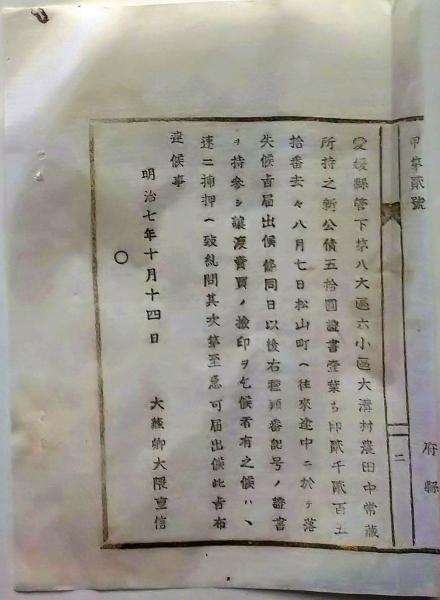 甲第貳號
府縣
二
愛媛縣管下第八大區六小區大溝村農田中常藏
所持之新公債五拾圓證書壹葉ち印貳千貳百五
拾番去ル八月七日松山町ヘ往來途中ニ於テ落
失候旨届出候條同日以後右種類番記号ノ證書
ヲ持参シ讓渡賣買ノ檢印ヲ乞候者有之候ハヽ
速ニ捕押ヘ致糺問其次第至急可届出候此旨布
達候事
明治七年十月十四日
大藏卿大隈重信